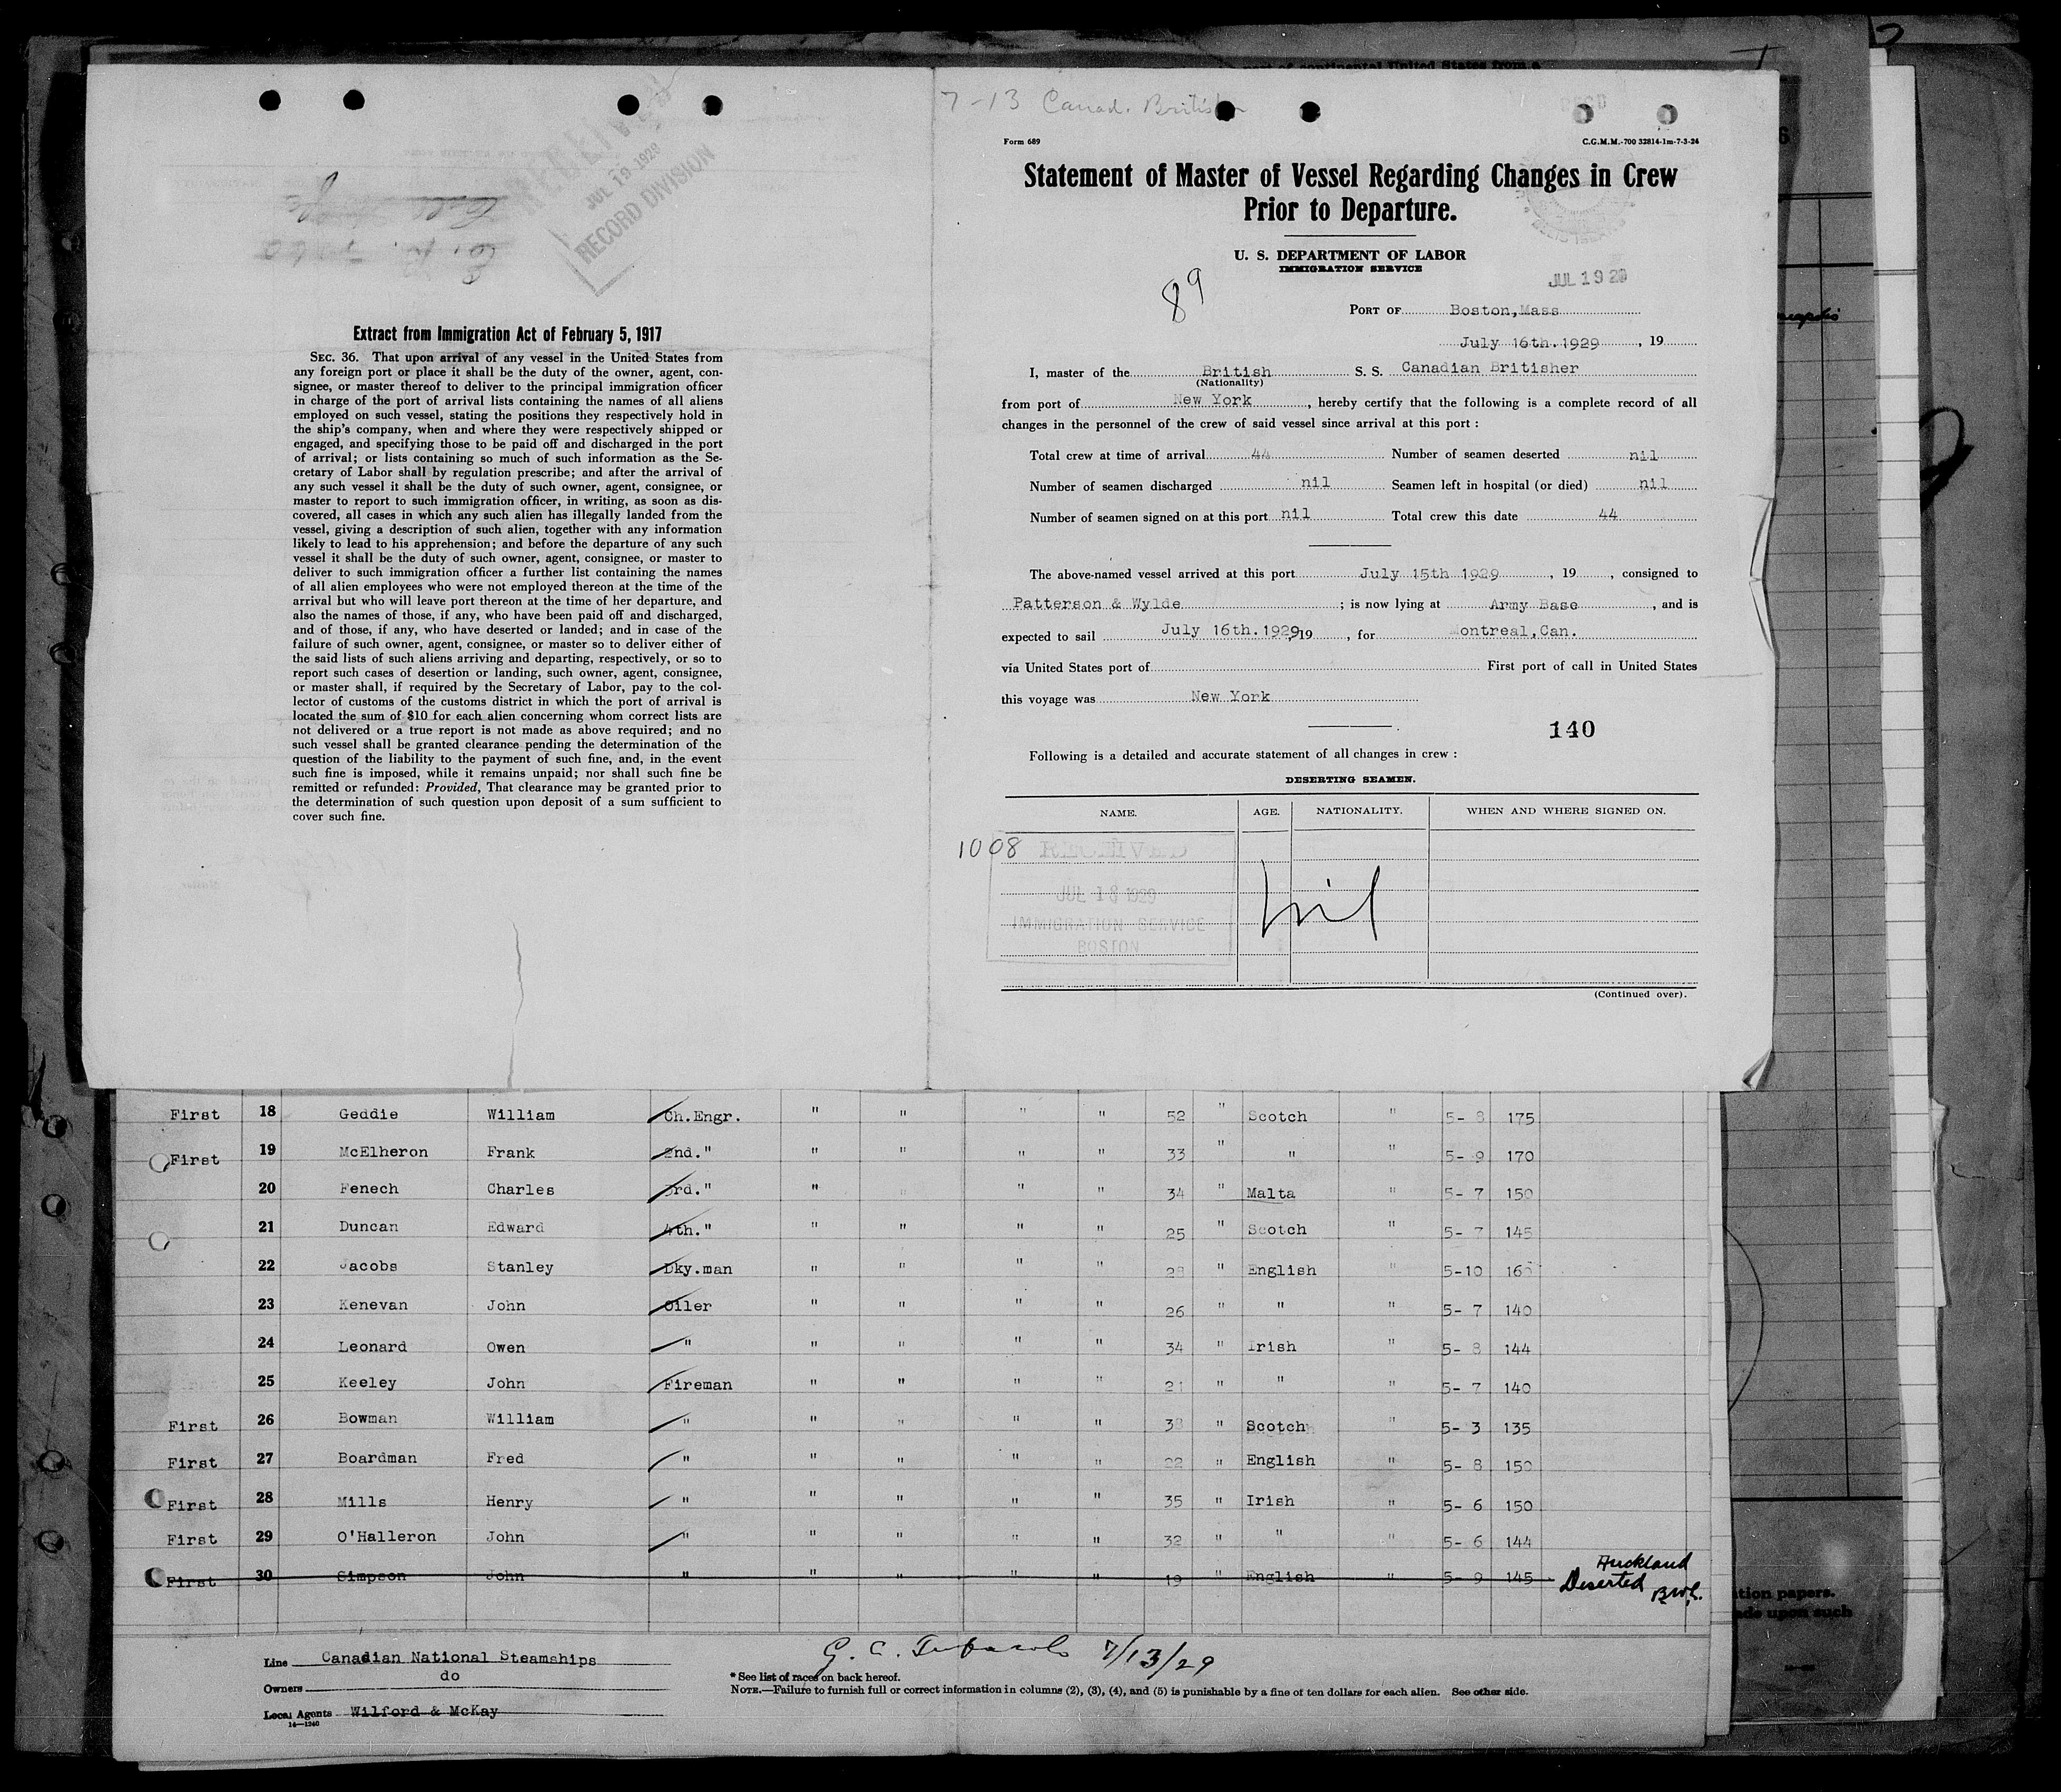 RECEIVED
JUL 19 1929
RECORD DIVISION
Extract from Immigration Act of February 5, 1917
SEC. 36. That upon arrival of any vessel in the United States from
any foreign port or place it shall be the duty of the owner, agent, con-
signee, or master thereof to deliver to the principal immigration officer
in charge of the port of arrival lists containing the names of all aliens
employed on such vessel, stating the positions they respectively hold in
the ship's company, when and where they were respectively shipped or
engaged, and specifying those to be paid off and discharged in the port
of arrival; or lists containing so much of such information as the Se-
cretary of Labor shall by regulation prescribe; and after the arrival of
any such vessel it shall be the duty of such owner, agent, consignee, or
master to report to such immigration officer, in writing, as soon as dis-
covered, all cases in which any such alien has illegally landed from the
vessel, giving a description of such alien, together with any information
likely to lead to his apprehension; and before the departure of any such
vessel it shall be the duty of such owner, agent, consignee, or master to
deliver to such immigration officer a further list containing the names
of all alien employees who were not employed thereon at the time of the
arrival but who will leave port thereon at the time of her departure, and
also the names of those, if any, who have been paid off and discharged,
and of those, if any, who have deserted or landed; and in case of the
failure of such owner, agent, consignee, or master so to deliver either of
the said lists of such aliens arriving and departing, respectively, or so to
report such cases of desertion or landing, such owner, agent, consignee,
or master shall, if required by the Secretary of Labor, pay to the col-
lector of customs of the customs district in which the port of arrival is
located the sum of $10 for each alien concerning whom correct lists are
not delivered or a true report is not made as above required; and no
such vessel shall be granted clearance pending the determination of the
question of the liability to the payment of such fine, and, in the event
such fine is imposed, while it remains unpaid; nor shall such fine be
remitted or refunded: Provided, That clearance may be granted prior to
the determination of such question upon deposit of a sum sufficient to
cover such fine.
7-13 Canad. Britisher
Form 689 C.G.M.M.-700 32814-1m-7-3-24
Statement of Master of Vessel Regarding Changes in Crew
Prior to Departure.
U. S. DEPARTMENT OF LABOR
IMMIGRATION SERVICE
89
JUL 19 29
PORT OF Boston,Mass
July 16th.1929, 19
I, master of the British S. S. Canadian Britisher
(Nationality)
from port of New York, hereby certify that the following is a complete record of all
changes in the personnel of the crew of said vessel since arrival at this port :
Total crew at time of arrival 44 Number of seamen deserted nil
Number of seamen discharged nil Seamen left in hospital (or died) nil
Number of seamen signed on at this port nil Total crew this date 44
The above-named vessel arrived at this port July 15th 1929, 19, consigned to
Patterson & Wylde ; is now lying at Army Base, and is
expected to sail July 16th.1929, 19, for Montreal,Can.
via United States port of First port of call in United States
this voyage was New York
140
Following is a detailed and accurate statement of all changes in crew :
DESERTING SEAMEN.
NAME. AGE. NATIONALITY. WHEN AND WHERE SIGNED ON.
1008
RECEIVED
JUL 18 1929
IMMIGRATION SERVICE
BOSTON
nil
(Continued over).
First 18 Geddie William Ch.Engr. " " " " 52 " Scotch " 5- 8 175
First 19 McElheron Frank 2nd." " " " " 33 " " " 5- 9 170
20 Fenech Charles 3rd." " " " " 34 " Malta " 5- 7 150
21 Duncan Edward 4th." " " " " 25 " Scotch " 5- 7 145
22 Jacobs Stanley Dky.man " " " " 28 " English " 5-10 160
23 Kenevan John Oiler " " " " 26 " " " 5- 7 140
24 Leonard Owen " " " " " 34 " Irish " 5- 8 144
25 Keeley John Fireman " " " " 21 " " " 5- 7 140
First 26 Bowman William " " " " " 38 " Scotch " 5- 3 135
First 27 Boardman Fred " " " " " 22 " English " 5- 8 150
First 28 Mills Henry " " " " " 35 " Irish " 5- 6 150
First 29 O'Halleron John " " " " " 32 " " " 5- 6 144
First 30 Simpson John " " " " " 19 " English " 5- 9 145 Auckland
Deserted B.W.C.
Line Canadian National Steamships
Owners do
Local Agents Wilford & McKay
14-1240
G. C. 7/13/29
* See list of races on back hereof.
NOTE.—Failure to furnish full or correct information in columns (2), (3), (4), and (5) is punishable by a fine of ten dollars for each alien. See other side.
tion papers.
ade upon such